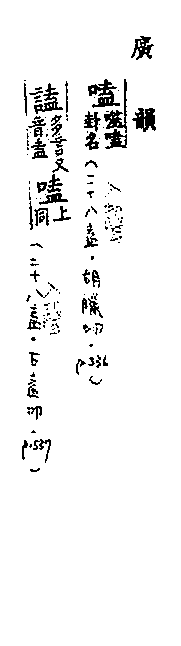 廣韻
嗑 噬嗑卦名（二十八盍．胡臘切．p.536）
𧪞 多言又音盍 嗑 上同（二十八盍．古盍切．p.537）